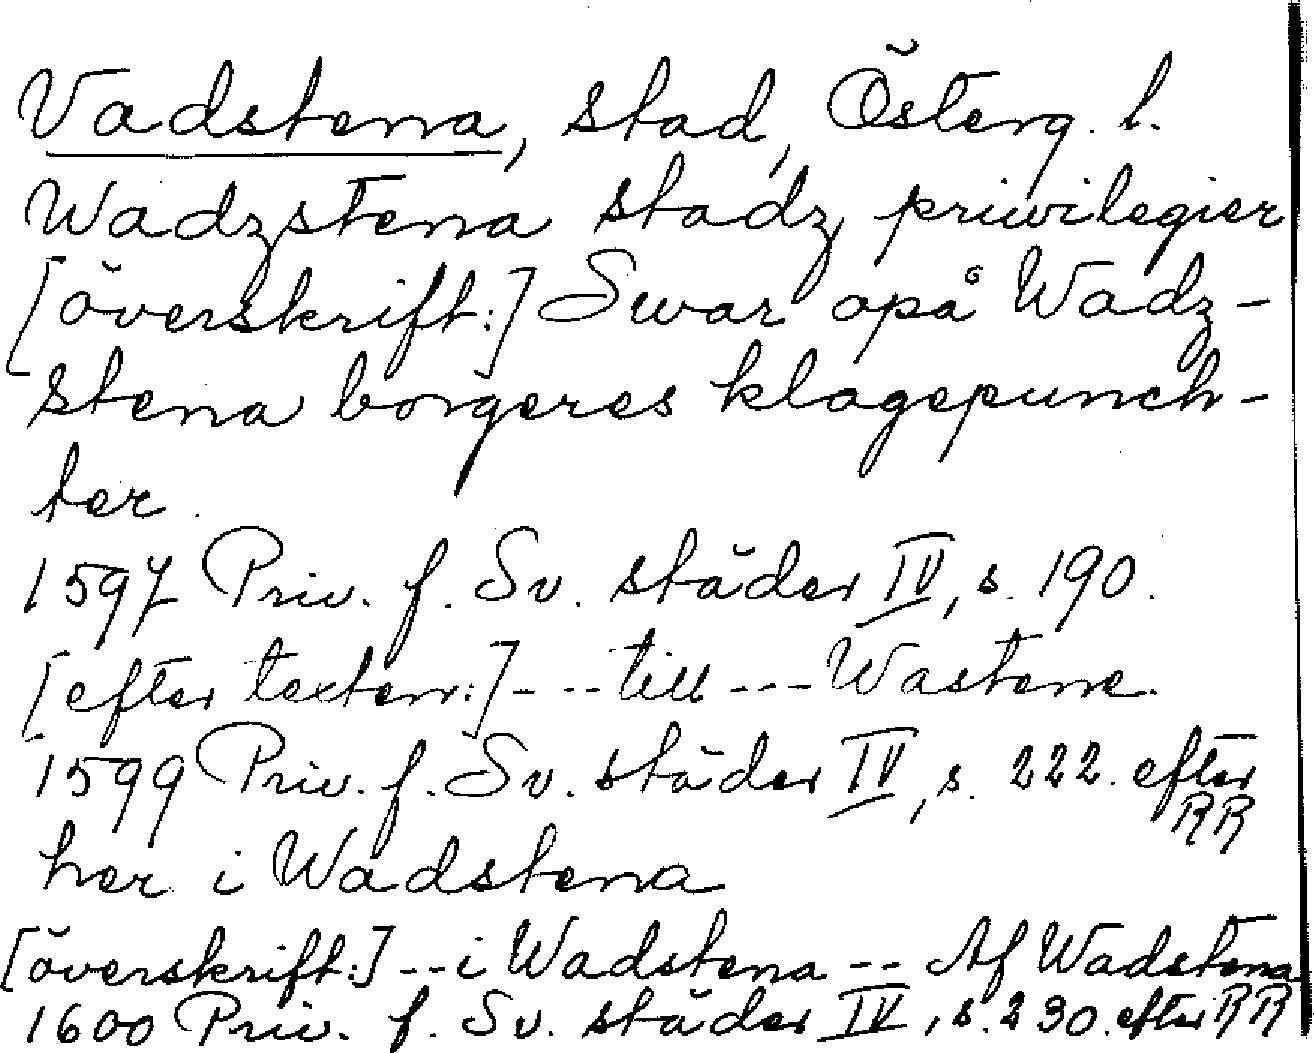 Vadstena, stad, Österg. l.
Wadzstena stadz priwilegier
[överskrift:] Swar opå Wadz-
stena borgeres klagepunch-
ter.
1597 Priv. f. Sv. städer IV, s. 190.
[efter texten:] - - - till - - - Wastene.
1599 Priv. f. Sv. städer IV, s. 222. efter
RR
her i Wadstena
[överskrift:] - - i Wadstena - - Af Wadstena
1600 Priv. f. Sv. städer IV, s. 230. efter RR